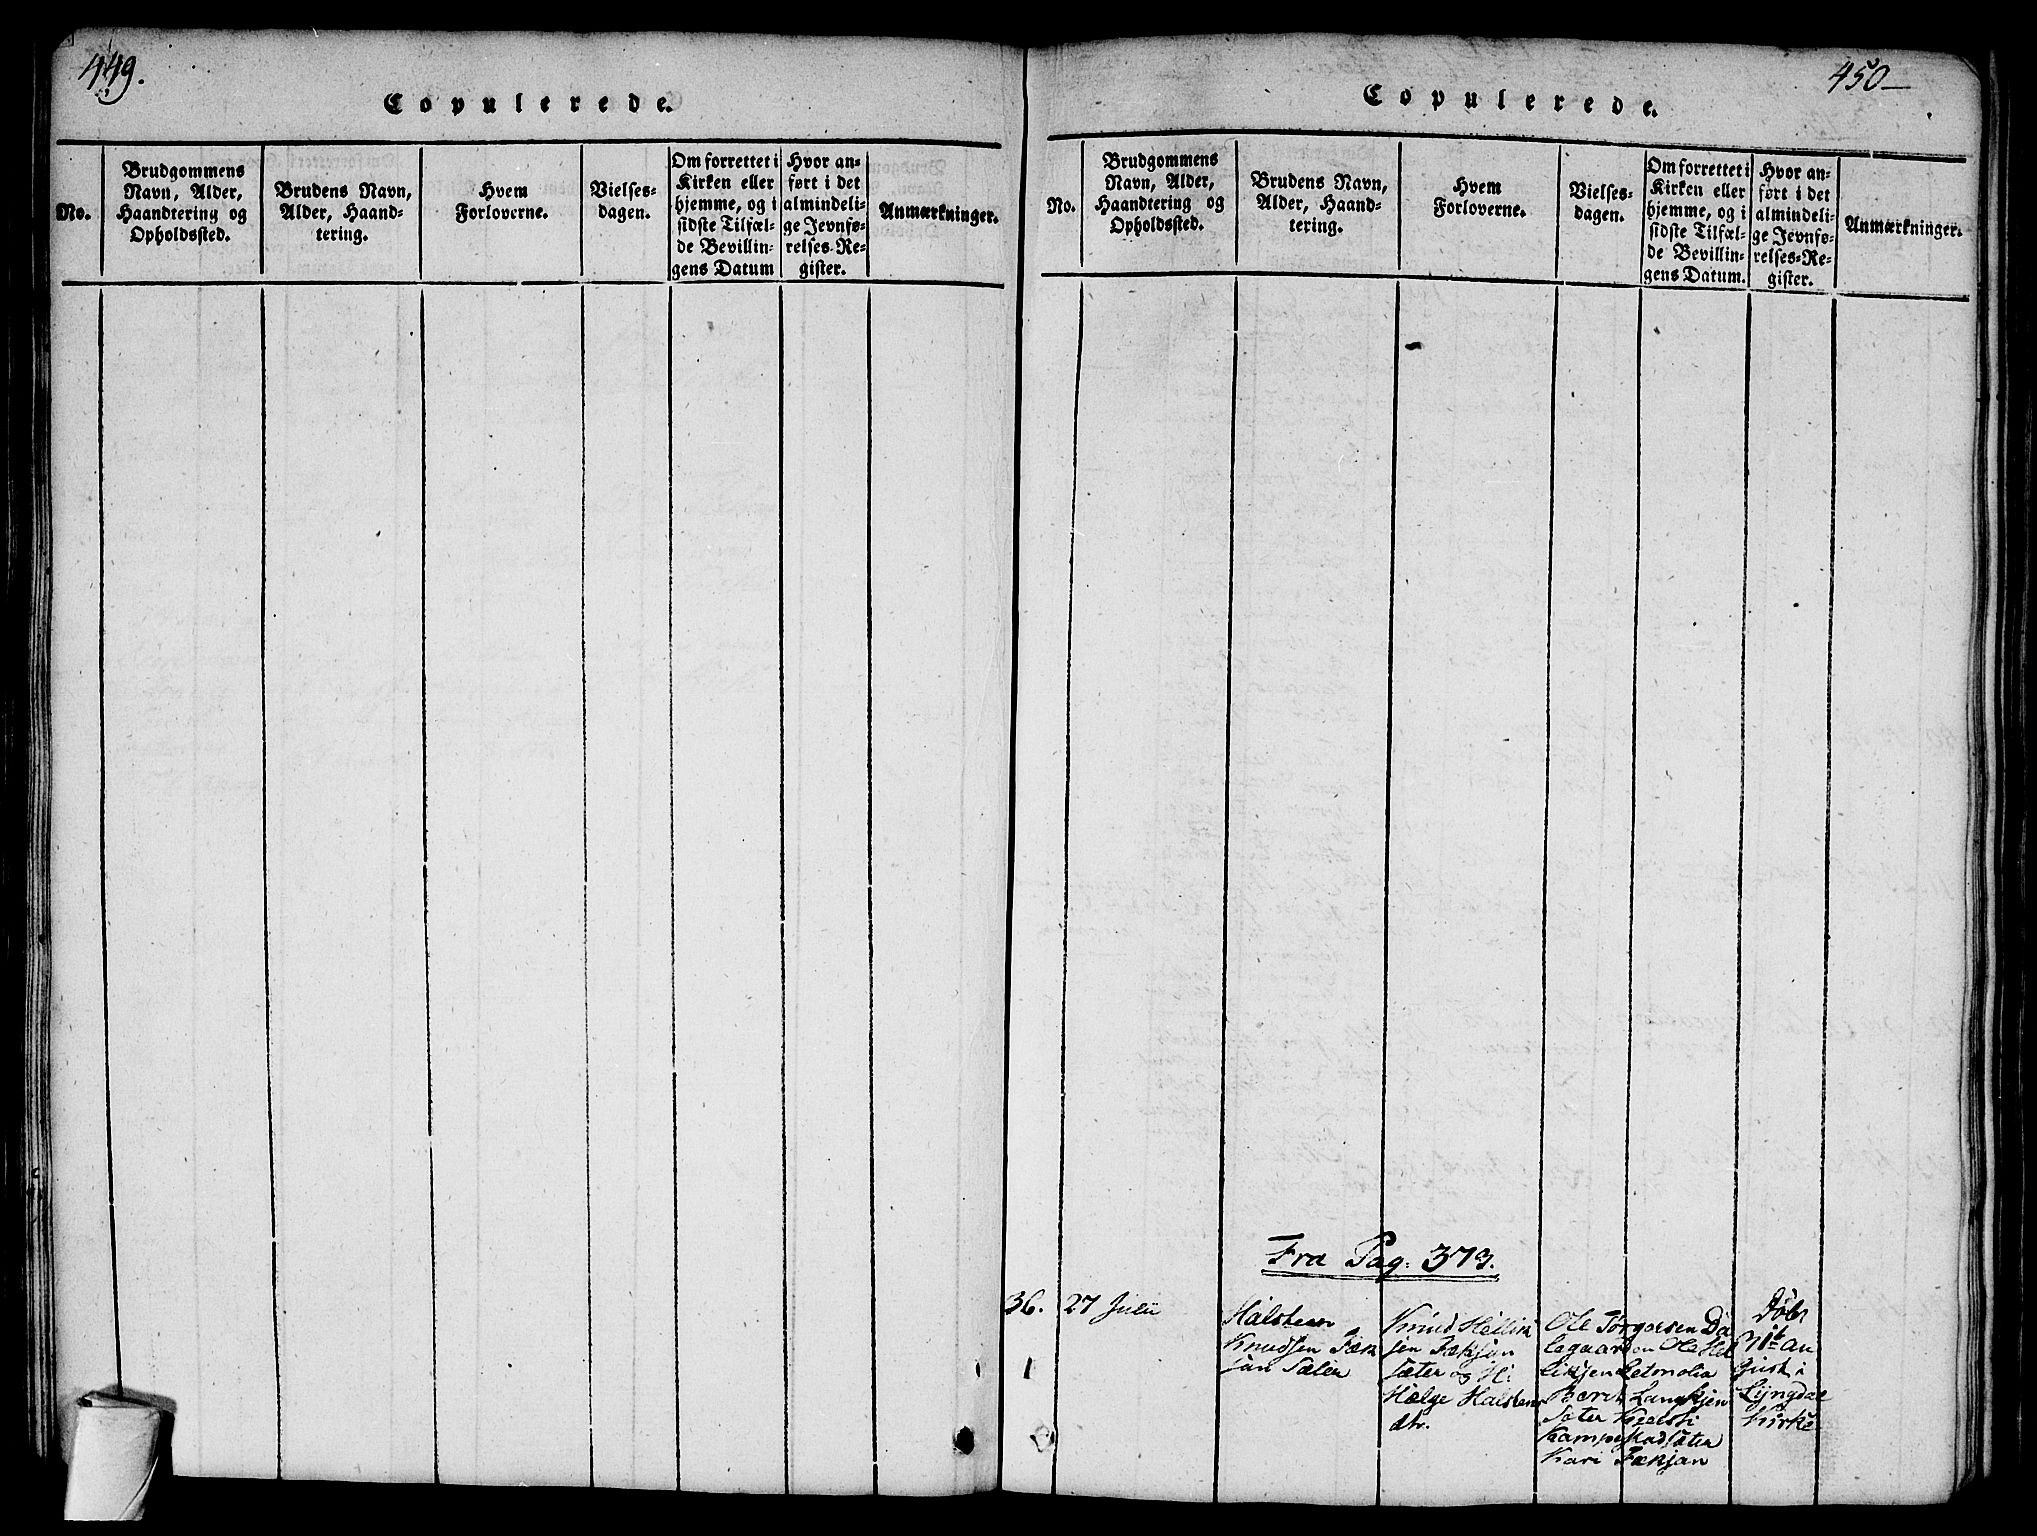 449.
Copulerede.
No.
Brudgommens
Navn, Alder,
Haandtering og
Opholdssted.
Brudens Navn,
Alder, Haand-
tering.
Hvem
Forloverne.
Vielses-
dagen.
Om forrettet i
Kirken eller
hjemme, og i
sidste Tilfæl-
de Bevillin-
gens Datum
Hvor an-
ført i det
almindeli-
ge Jevnfø-
relses-Re-
gister.
Anmærkninger.
450
Copulerede.
No.
Brudgommens
Navn, Alder,
Haandtering og
Opholdssted.
Brudens Navn,
Alder, Haand-
tering.
Hvem
Forloverne.
Vielses-
dagen.
Om forrettet i
Kirken eller
hjemme, og i
sidste Tilfæl-
de Bevillin-
gens Datum.
Hvor an-
ført i det
almindeli-
ge Jevnfø-
relses-Re-
gister.
Anmærkninger.
Fra Pag: 373.
36.
1
27 Julii
Halsteen
Knudsen
Knud
sæter og
Helge Halstens
dtr.
Ole Torgersen
Ole Hel
Berit
Sæter
Kari
Døbt
i
Lyngdal
kirke